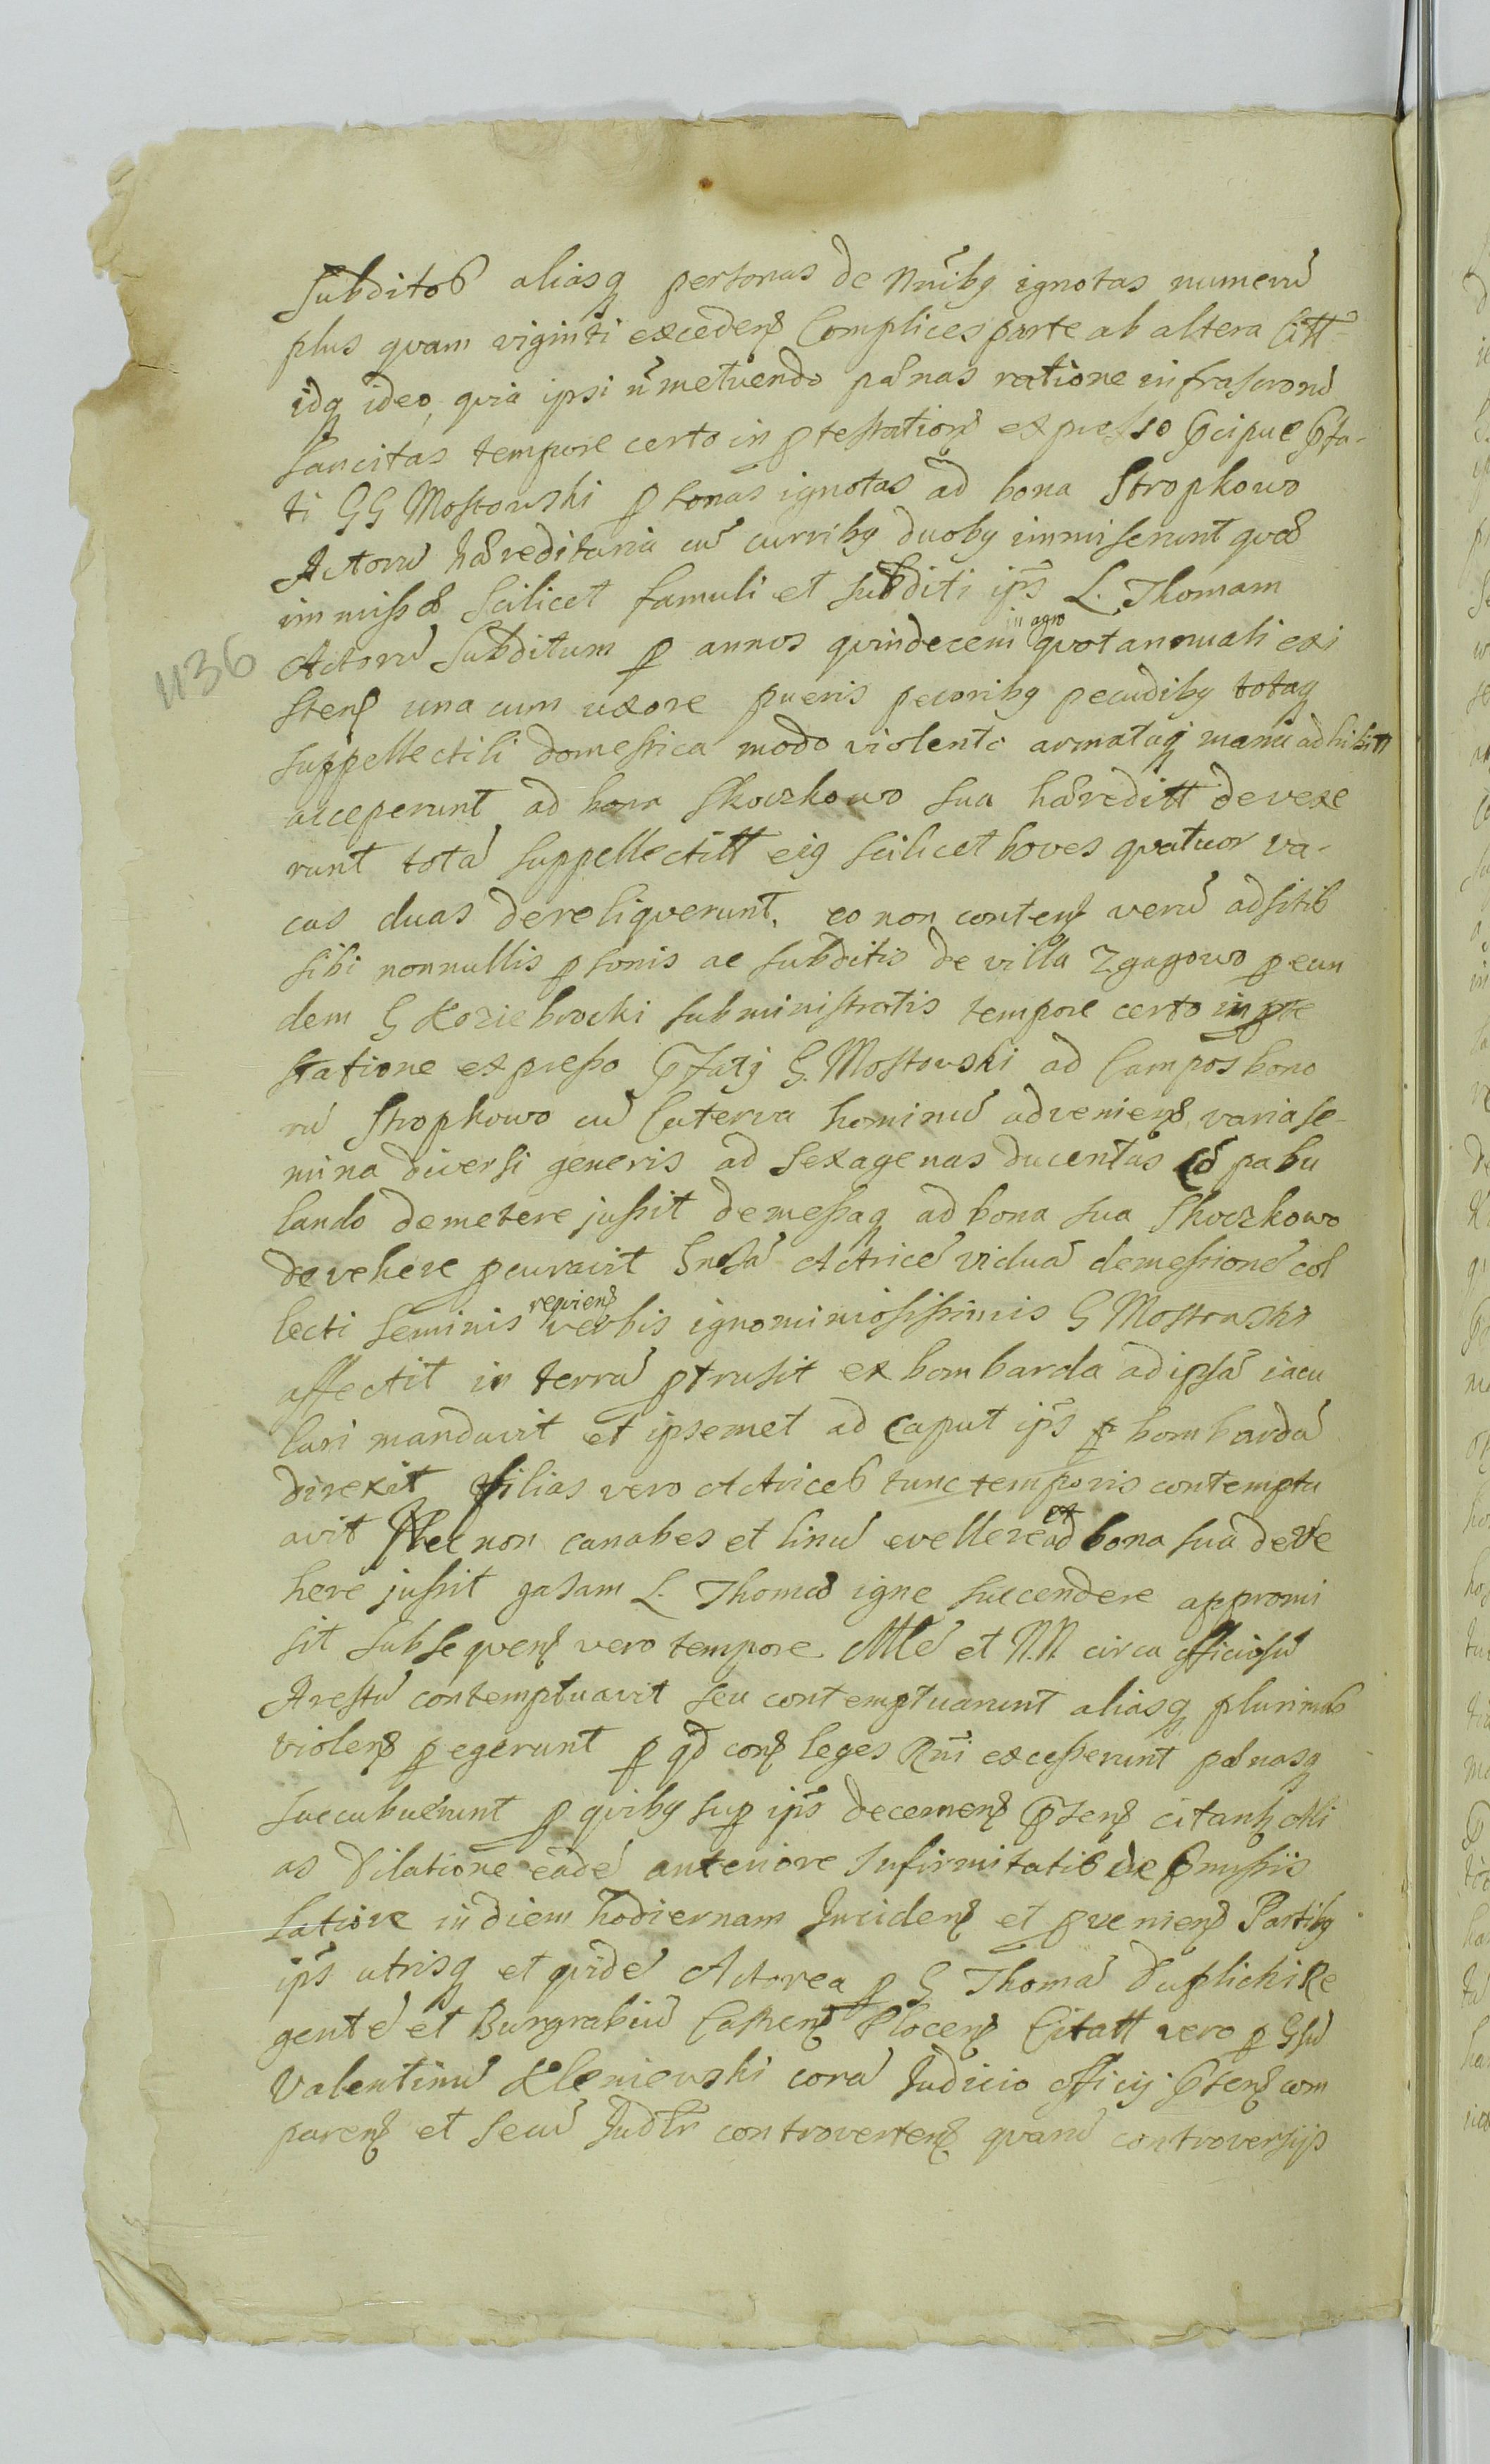 Subditos aliasq personas de Nnibq ignotas numerū
plus quam viginti exceden̄ Complices parte ab altera Citt
idq ideo, quia ipsi n̄ metuendo pœnas ratione infrascrorū
sancitas tempore certo in ptestation̄ expresso p̄cipue p̄fa-
ti GG Mostowski psonas ignotas ad bona Stropkowo
Actorū hæreditaria cū curribq duobq immiserunt quæ
immissæ scilicet famuli et subditi ip̄s L. Thomam
Actorū Subditum p annos quindecem in agro quotannuali exi
sten̄ una cum uxore pueris pecoribq pecudibq totaq
suppellectili domestica modo violento armataq manu adhibitt
acceperunt ad bona Skoczkowo sua hæreditt devexe
runt totā suppellectitt eiq scilicet boves quatuor va-
cas duas dereliquerunt, eo non conten̄ verū adsitis
sibi nonnullis psonis ac subditis de villa Zgagowo p eun
dem G Koziebrocki subministratis tempore certo in pte
statione expresso p̄fatq G. Mostowski ad Campos bono
rū Stropkowo cū Caterva hominū advenien̄ varia se-
mina diversi generis ad sexagenas ducentas pabu
lando demetere jussit demessaq ad bona sua Skoczkowo
devehere pcuravit Actricē viduā demessionē col
lecti seminis verbis ignominiosissimis G Mostowski
affectit in terrā ptrusit ex bombarda ad ipsā iacu
lari mandavit et ipsemet ad caput ip̄s bombardā
direxit filias vero Actrices tunc temporis contemptu
avit Nec non canabes et linū evellere et ad bona sua deve
here jussit L. Thomæ igne succendere appromi
sit subsequen̄ vero tempore Mtē et N.N. circa officiosū
Arestū contemptuavit seu contemptuarunt aliasq plurimas
violen̄ pegerunt p qd con̄ leges Rni excesserunt pœnasq
succubuerunt p quibq sup ip̄s decernen̄ p̄sen̄ citan̄ Ali
as Dilatione eādē anteriore Infirmitatis
latiore in diem hodiernam Inciden̄ et pvenien̄ Partibq
ip̄s utrisq et quidē Actorea p G Thomā Duplicki Re
gentē et Burgrabiū Castren̄ Plocen̄ Citatt vero p Gsū
Valentinū Kleniewski corā Judicio officij p̄sen̄ com
paren̄ et secū Judlr controverten̄ quarū controversijs
1136